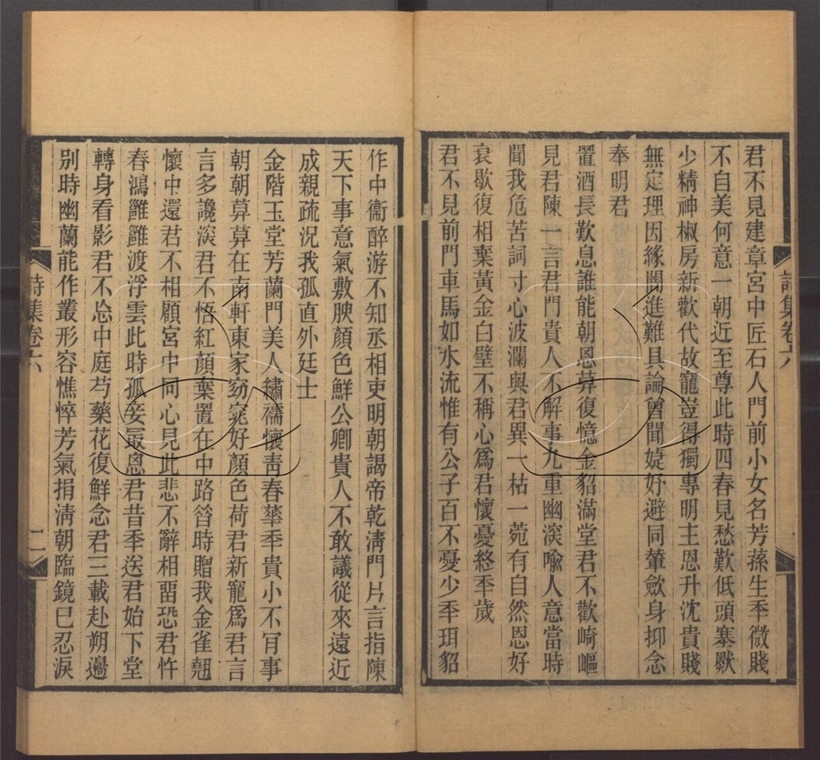 君不見建章宮中匠石人門前小女名芳蓀生秊微賤
不自美何意一朝近至尊此時四春見愁歎低頭塞默
少精神椒房新歡代故寵豈得獨專明主恩升沈貴賤
無定理因緣關進難具論曾聞婕妤避同輦斂身抑念
奉明君
置酒長歎息誰能朝恩莫復憶金貂滿堂君不歡崎嶇
見君陳一言君門貴人不解事九重幽湥喩人意當時
聞我危苦詞寸心波瀾與君異一枯一菀有自然恩好
衰歇復相棄黃金白璧不稱心爲君懷憂終秊歲
君不見前門車馬如水流惟有公子百不憂少秊珥貂
詩集卷六
作中衞醉游不知丞相吏明朝謁帝乾淸門片言指陳
天下事意氣敷腴顏色鮮公卿貴人不敢議從來遠近
成親疏況我孤直外廷士
金階玉堂芳蘭門美人繡襦懷靑春蕐秊貴小不肎事
朝朝莫莫在南軒東家窈窕好顏色荷君新寵爲君言
言多讒湥君不悟紅顏棄置在中路昝時贈我金雀翹
懷中還君不相顧宮中同心見此悲不辭相畱恐君忤
春鴻雝雝渡浮雲此時孤妾最恩君昔秊送君始下堂
轉身看影君不忩中庭芍藥花復鮮念君三載赴朔邊
別時幽蘭能作叢形容憔悴芳氣捐淸朝臨鏡已忍淚
詩集卷六
二